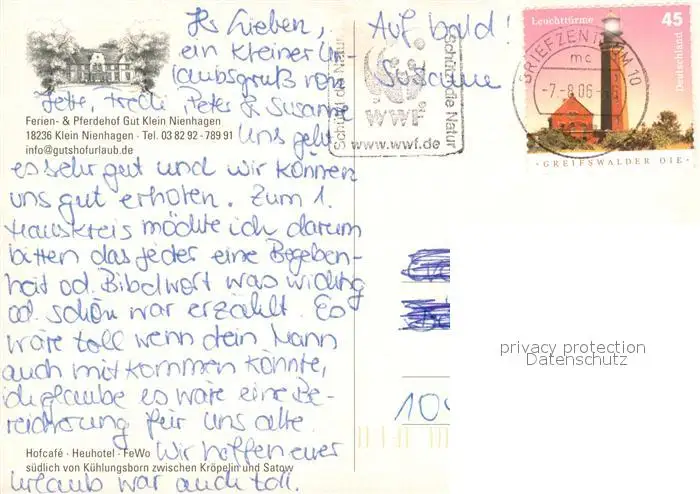 Ihr Lieben,
ein kleiner Ur-
laubsgruß von
Jette, Peter & Susanne
Ferien- & Pferdehof Gut Klein Nienhagen
18236 Klein Nienhagen · Tel. 03 82 92 - 789 91
info@gutshofurlaub.de
Uns geht
es sehr gut und wir können
uns gut erholen. Zum 1.
Hauskreis möchte ich darum
bitten das jeder eine Begeben-
heit od. Bibelwort was wichtig
od. schön war erzählt. Es
wäre toll wenn dein Mann
auch mitkommen könnte,
ich glaube es wäre eine Be-
reicherung für uns alle.
Hofcafé · Heuhotel · FeWo
Wir hoffen euer
südlich von Kühlungsborn zwischen Kröpelin und Satow
Urlaub war auch toll.
Auf bald!
Susanne
Schützt die Natur
WWF
Schützt die Natur
www.wwf.de
Leuchttürme 45
Deutschland
BRIEFZENTRUM 10
mc
-7.-8.06-
GREIFSWALDER OIE
privacy protection
Datenschutz
10